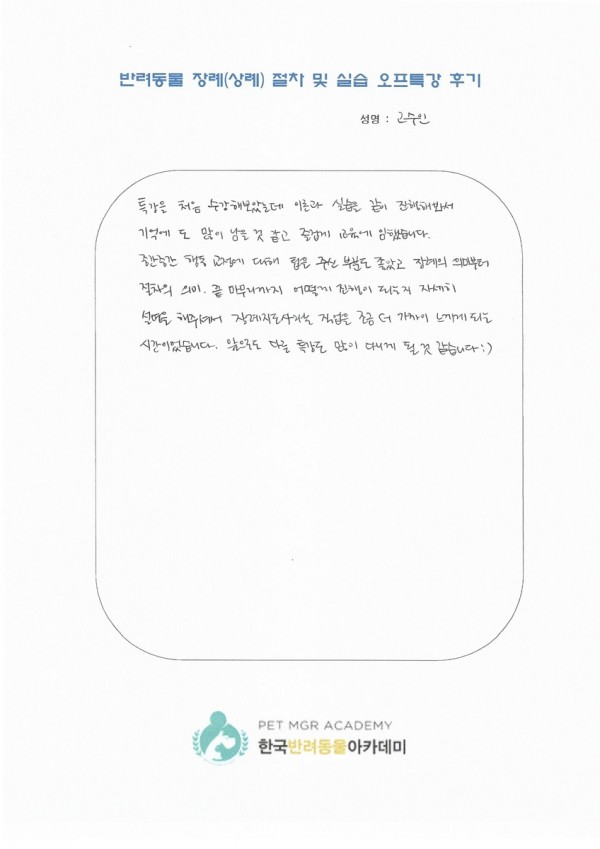 반려동물 장례(상례) 절차 및 실습 오프특강 후기
성명 : 고수인
특강을 처음 수강해보았는데 이론과 실습을 같이 진행해봐서
기억에 도 많이 남을 것 같고 즐겁게 교육에 임했습니다.
중간중간 행동 교정에 대해 팁을 주신 부분도 좋았고 장례의 의미부터
절차의 의미. 끝 마무리까지 어떻게 진행이 되는지 자세히
설명을 해주셔서 장례지도사라는 직업을 조금 더 가까이 느끼게 되는
시간이었습니다. 앞으로도 다른 특강도 많이 다니게 될 것 같습니다:)
PET MGR ACADEMY
한국반려동물아카데미